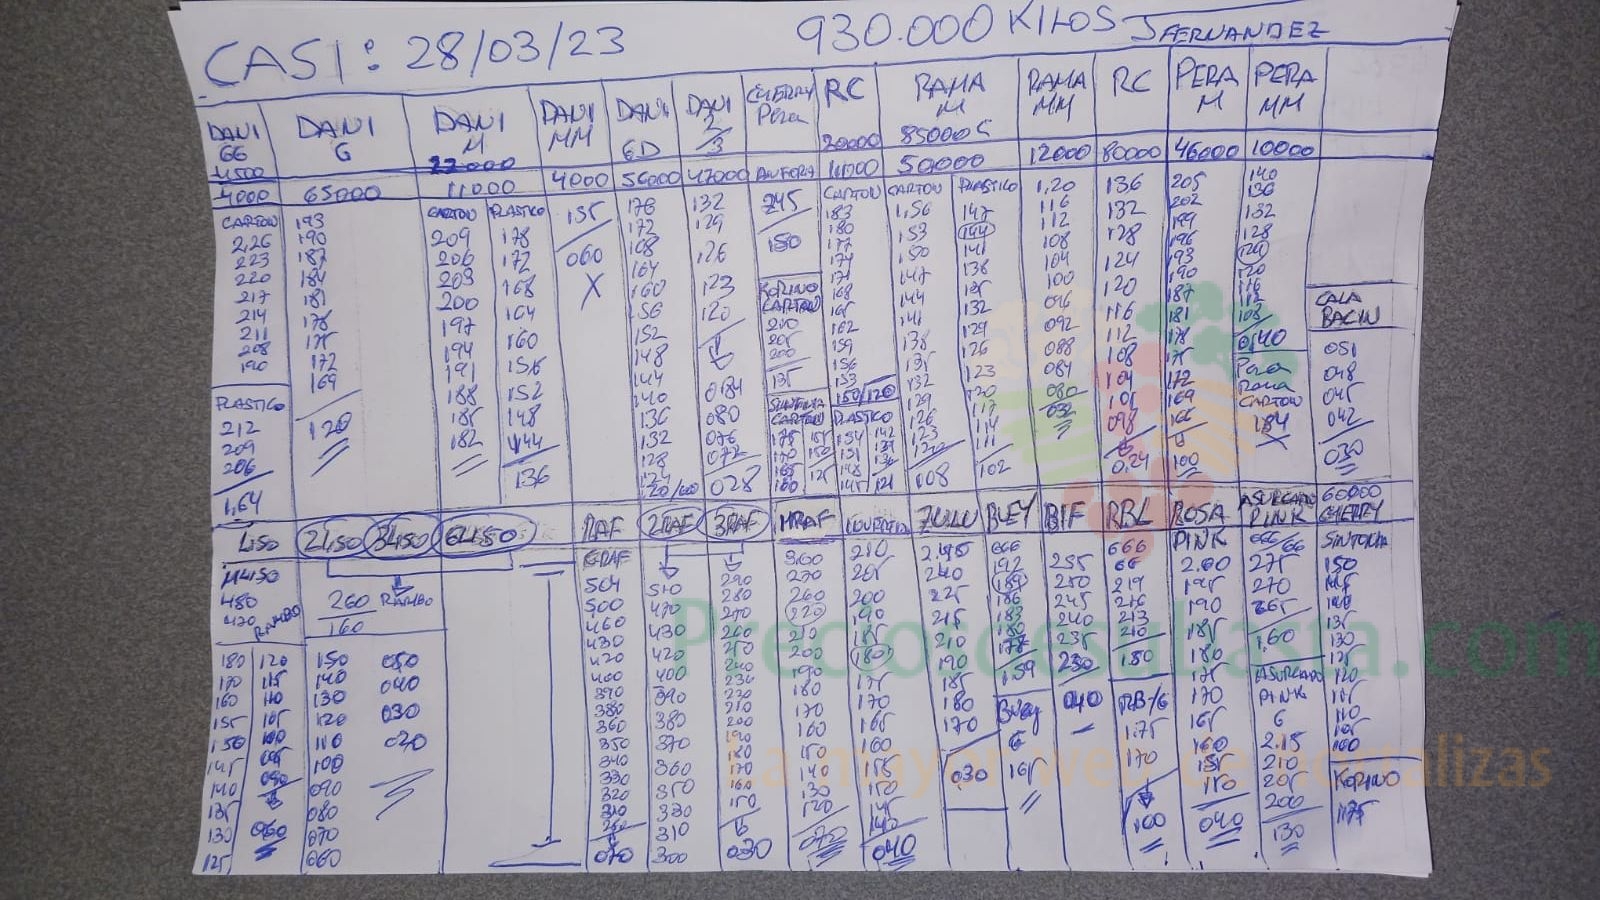 CASI: 28/03/23 930.000 KILOS JFERNANDEZ
DANI GG 4500 4000
DANI G 65000
DANI M 22000 11000
DANI MM 4000
DANI GD 56000
DANI 2/3 47000
CHERRY Pera ANFORA
RC 20000 11000
RAMA M 85000 50000
RAMA MM 12000
RC 80000
PERA M 46000
PERA MM 10000
CARTON
2,26
223
220
217
214
211
208
190
PLASTICO
212
209
206
1,64
193
190
187
184
181
178
175
172
169
120
CARTON
209
206
203
200
197
194
191
188
185
182
PLASTICO
178
172
168
164
160
156
152
148
144
136
135
060
X
176
172
168
164
160
156
152
148
144
140
136
132
128
124
120/100
132
129
126
123
120
084
080
076
072
028
245
150
KORINO
CARTON
200
135
SINTONIA
CARTON
CARTON
183
180
177
174
171
168
165
162
159
156
153
150/120
PLASTICO
154 142
151 139
148 136
145
CARTON
1,56
153
150
147
144
141
138
135
132
129
126
123
120
108
PLASTICO
147
144
141
138
135
132
129
126
123
120
117
114
111
102
1,20
116
112
108
104
100
096
092
088
084
080
032
136
132
128
124
120
116
112
108
104
101
098
0,24
205
202
199
196
193
190
187
181
178
175
172
169
166
100
140
136
132
128
124
120
116
112
108
0,40
Pera
Rama
CARTON
184
CALA
BACIN
051
048
045
042
030
LISO 2LISO 3LISO 6LISO RAF 2RAF 3RAF MRAF ZULU BUEY BIF RBL ROSA PINK ASURCADO PINK 60000 CHERRY
MLISO
480
430
RAMBO
180 120
170 115
160 110
155 105
150 100
145 095
140 090
135
130 060
125
260 RAMBO
160
150 050
140 040
130 030
120 020
110
100
090
080
070
060
GRAF
504
500
460
430
420
400
390
380
360
350
340
330
320
310
070
510
470
430
420
400
390
380
370
360
350
330
310
300
290
280
270
260
250
240
230
220
210
200
190
180
170
160
150
030
300
270
260
220
210
200
190
180
170
160
150
140
130
120
070
210
205
200
190
185
180
175
170
165
160
155
150
145
142
040
2.45
240
225
215
210
190
185
180
170
030
666
192
189
186
183
180
178
159
Buey
G
165
255
250
245
240
235
230
040
666
66
219
216
213
210
150
RB/G
1.75
170
100
2.00
195
190
185
180
175
170
165
160
155
150
040
666/66
275
270
265
1,60
ASURCADO
PINK
G
2.15
210
205
200
130
SINTONIA
150
145
140
135
130
125
120
115
110
105
100
KORINO
175
Preciosdesubasta.com
La mayor web de hortalizas